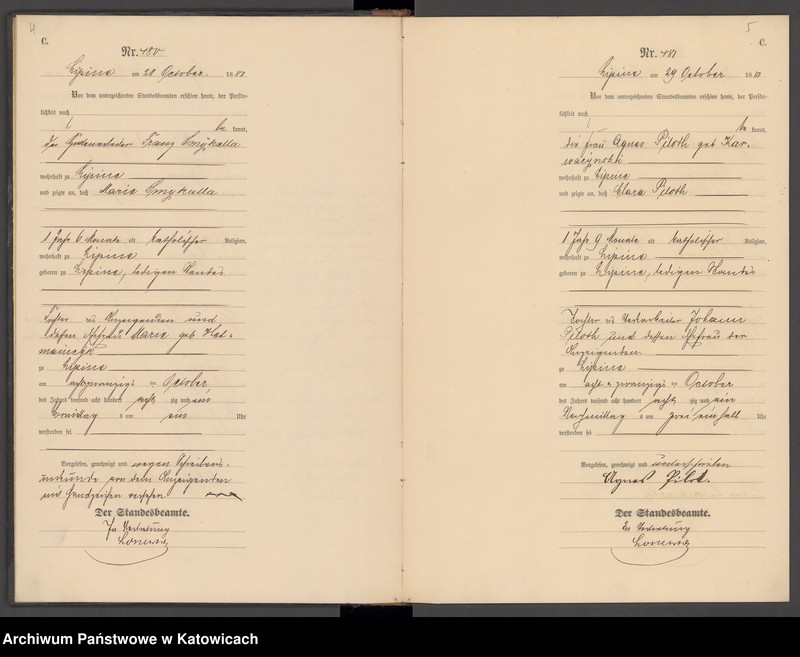 4
C.
Nr. 480
Lipine am 28 October. 1881
Vor dem unterzeichneten Standesbeamten erschien heute, der Persön-
lichkeit nach
be kannt,
der Hüttenarbeiter Franz Smykalla
wohnhaft zu Lipine
und zeigte an, daß Marie Smykalla
1 Jahr 6 Monate alt katholischer Religion,
wohnhaft zu Lipine
geboren zu Lipine, ledigen Standes
Tochter des Anzeigenden und
dessen Ehefrau Marie geb
zu Lipine
am achtzwanzig October
des Jahres tausend acht hundert acht zig und ein
Vormittag um ein Uhr
verstorben sei
Vorgelesen, genehmigt und wegen Schreibens-
unkunde von dem Anzeigenden
mit Handzeichen versehen
Der Standesbeamte.
In Vertretung
5
C.
Nr. 481
Lipine am 29 October 1881
Vor dem unterzeichneten Standesbeamten erschien heute, der Persön-
lichkeit nach
be kannt,
die Frau Agnes Piloth geb Kar-
wohnhaft zu Lipine
und zeigte an, daß Clara Piloth
1 Jahr 9 Monate alt katholischer Religion,
wohnhaft zu Lipine
geboren zu Lipine, ledigen Standes
Tochter des Johann
Piloth und dessen Ehefrau der
Anzeigenden.
zu Lipine
am acht u zwanzig October
des Jahres tausend acht hundert acht zig und ein
Nachmittag um zwei einhalb Uhr
verstorben sei
Vorgelesen, genehmigt und unterschrieben
Agnes Pilot.
Der Standesbeamte.
In Vertretung
Archiwum Państwowe w Katowicach